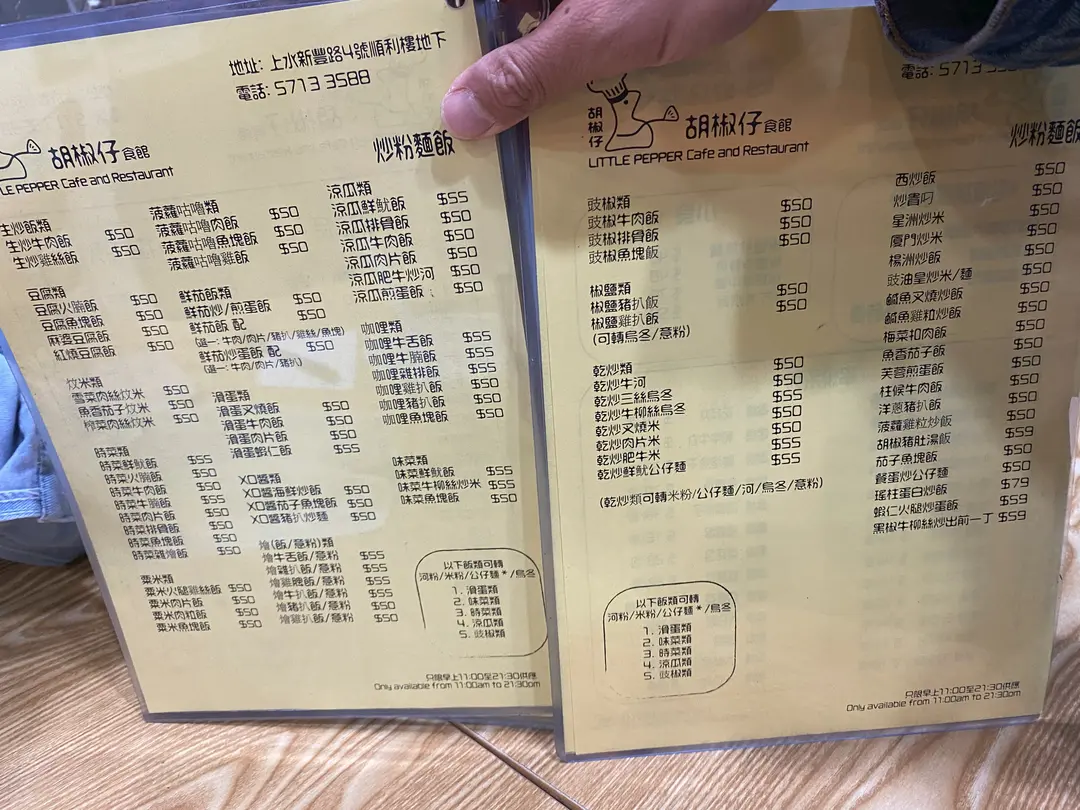 地址: 上水新豐路4號順利樓地下
電話: 5713 3588
胡椒仔食館
LE PEPPER Cafe and Restaurant
炒粉麵飯
生炒飯類
生炒牛肉飯 $50
生炒雞絲飯 $50
豆腐類
豆腐火腩飯 $50
豆腐魚塊飯 $50
麻婆豆腐飯 $50
紅燒豆腐飯 $50
炆米類
雪菜肉絲炆米 $50
魚香茄子炆米 $50
榨菜肉絲炆米 $50
時菜類
時菜鮮魷飯 $55
時菜火腩飯 $50
時菜牛肉飯 $50
時菜牛腩飯 $55
時菜肉片飯 $50
時菜排骨飯 $50
時菜魚塊飯 $50
時菜雞膾飯 $50
粟米類
粟米火腿雞絲飯 $50
粟米肉片飯 $50
粟米肉粒飯 $50
粟米魚塊飯 $50
菠蘿咕嚕類
菠蘿咕嚕肉飯 $50
菠蘿咕嚕魚塊飯 $50
菠蘿咕嚕雞飯 $50
鮮茄飯類
鮮茄炒/煎蛋飯 $50
鮮茄飯 配 $50
(選一: 牛肉/肉片/豬扒/雞絲/魚塊)
鮮茄炒蛋飯 配 $50
(選一: 牛肉/肉片/豬扒)
滑蛋類
滑蛋叉燒飯 $50
滑蛋牛肉飯 $50
滑蛋肉片飯 $50
滑蛋蝦仁飯 $55
XO醬類
XO醬海鮮炒飯 $50
XO醬茄子魚塊飯 $50
XO醬豬扒炒麵 $50
燴(飯/意粉)類
燴牛舌飯/意粉 $55
燴雜扒飯/意粉 $55
燴雞髀飯/意粉 $55
燴牛扒飯/意粉 $55
燴豬扒飯/意粉 $50
燴雞扒飯/意粉 $50
涼瓜類
涼瓜鮮魷飯 $55
涼瓜排骨飯 $50
涼瓜牛肉飯 $50
涼瓜肉片飯 $50
涼瓜肥牛炒河 $50
涼瓜煎蛋飯 $50
咖喱類
咖喱牛舌飯 $55
咖喱牛腩飯 $55
咖喱雜排飯 $55
咖喱雞扒飯 $50
咖喱豬扒飯 $50
咖喱魚塊飯 $50
味菜類
味菜鮮魷飯 $55
味菜牛柳絲炒米 $55
味菜魚塊飯 $50
以下飯類可轉
河粉/米粉/公仔麵*/烏冬
1. 滑蛋類
2. 味菜類
3. 時菜類
4. 涼瓜類
5. 豉椒類
只限早上11:00至21:30供應
Only available from 11:00am to 21:30pm
電話: 5713 35
胡椒仔
胡椒仔食館
LITTLE PEPPER Cafe and Restaurant
炒粉麵飯
豉椒類
豉椒牛肉飯 $50
豉椒排骨飯 $50
豉椒魚塊飯 $50
椒鹽類
椒鹽豬扒飯 $50
椒鹽雞扒飯 $50
(可轉烏冬/意粉)
乾炒類
乾炒牛河 $50
乾炒三絲烏冬 $50
乾炒牛柳絲烏冬 $55
乾炒叉燒米 $50
乾炒肉片米 $50
乾炒肥牛米 $55
乾炒鮮魷公仔麵 $55
(乾炒類可轉米粉/公仔麵/河/烏冬/意粉)
西炒飯 $50
炒貴叼 $50
星洲炒米 $50
廈門炒米 $50
楊洲炒飯 $50
豉油皇炒米/麵 $50
鹹魚叉燒炒飯 $50
鹹魚雞粒炒飯 $50
梅菜扣肉飯 $50
魚香茄子飯 $50
芙蓉煎蛋飯 $50
柱候牛肉飯 $50
洋蔥豬扒飯 $50
菠蘿雞粒炒飯 $50
胡椒豬肚湯飯 $59
茄子魚塊飯 $50
餐蛋炒公仔麵 $50
瑤柱蛋白炒飯 $79
蝦仁火腿炒蛋飯 $59
黑椒牛柳絲炒出前一丁 $59
以下飯類可轉
河粉/米粉/公仔麵*/烏冬
1. 滑蛋類
2. 味菜類
3. 時菜類
4. 涼瓜類
5. 豉椒類
只限早上11:00至21:30供應
Only available from 11:00am to 21:30pm